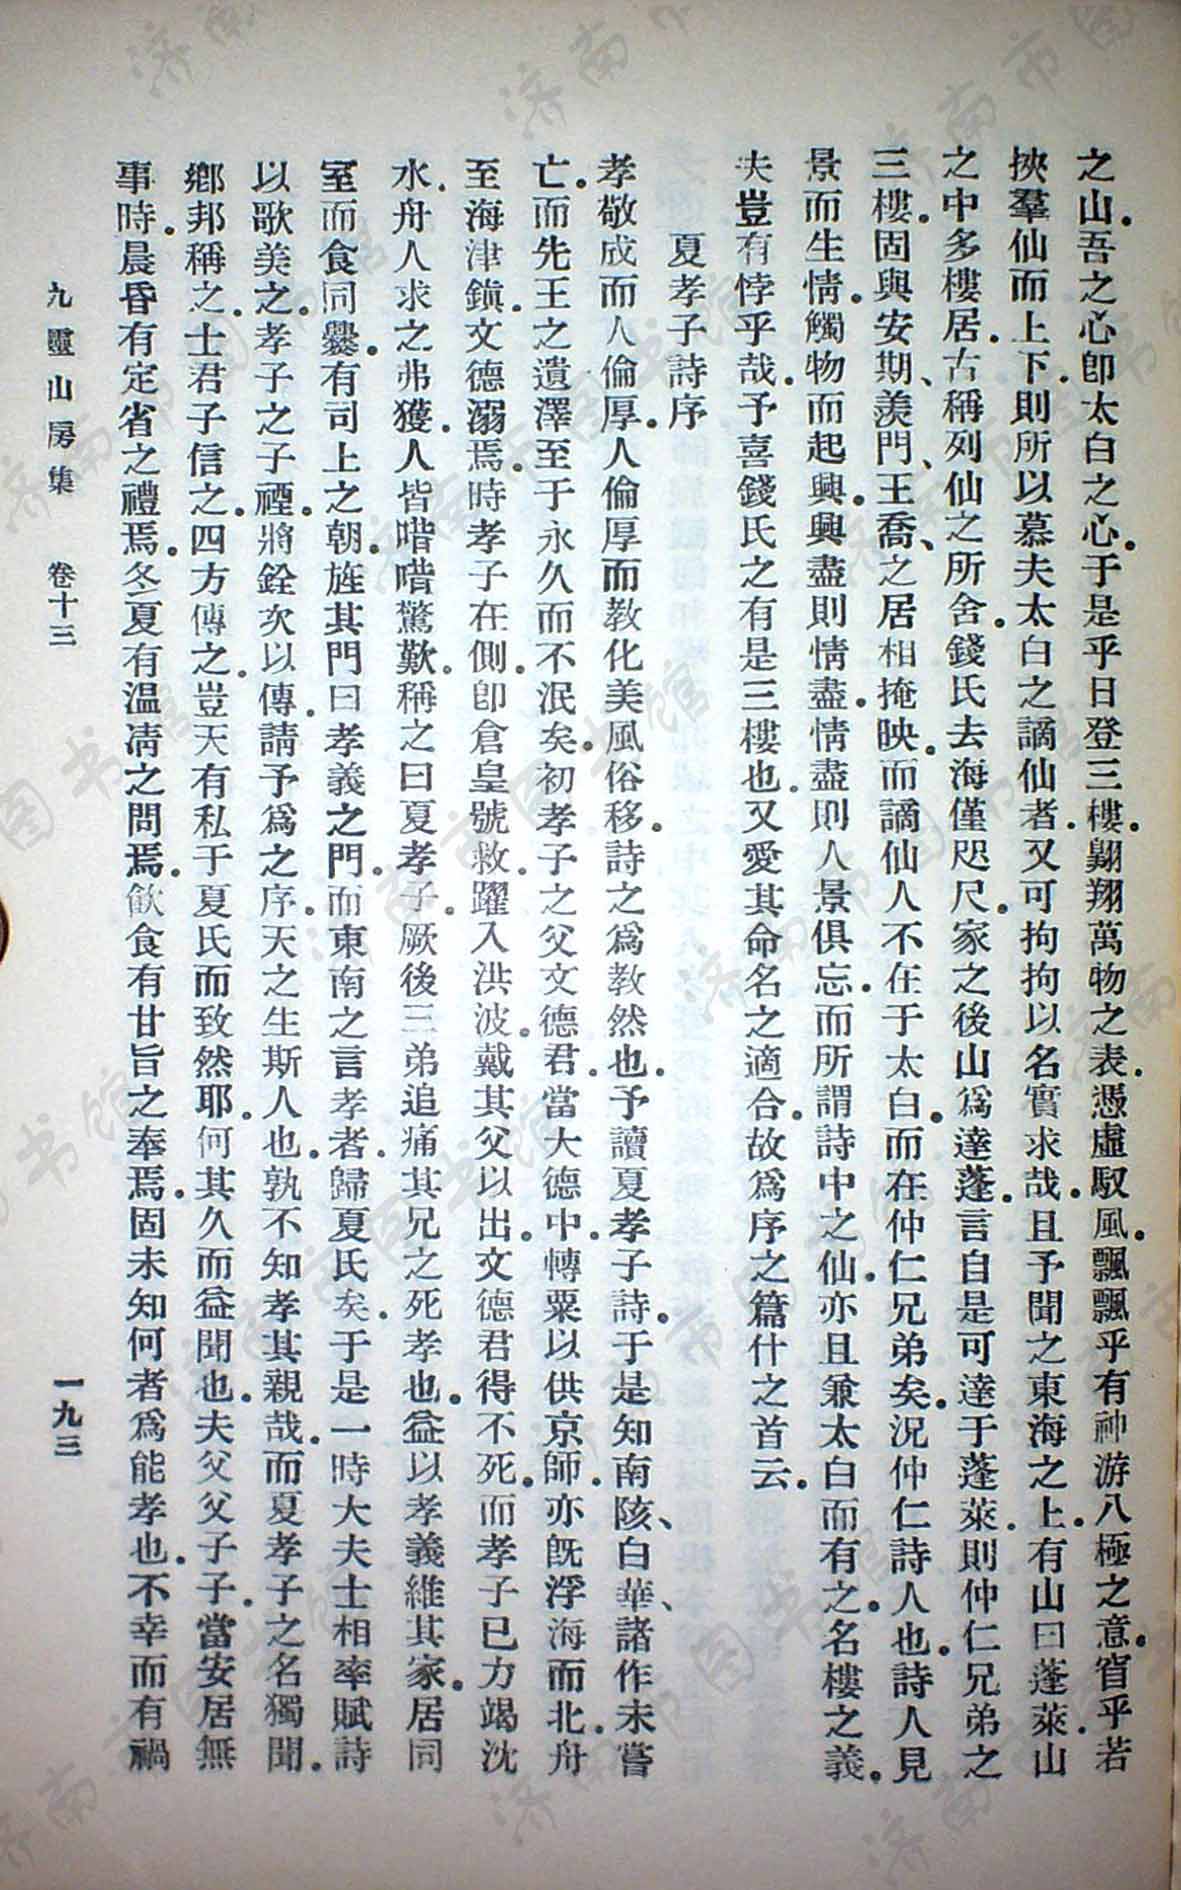 之山。吾之心卽太白之心。于是乎日登三樓。翺翔萬物之表。憑虛馭風。飄飄乎有神游八極之意。窅乎若
挾羣仙而上下。則所以慕夫太白之謫仙者。又可拘拘以名實求哉。且予聞之東海之上。有山曰蓬萊。山
之中多樓居。古稱列仙之所舍。錢氏去海僅咫尺。家之後山爲達蓬。言自是可達于蓬萊。則仲仁兄弟之
三樓。固與安期、羨門、王喬、之居相掩映。而謫仙人不在于太白。而在仲仁兄弟矣。況仲仁詩人也。詩人見
景而生情。觸物而起興。興盡則情盡。情盡則人景俱忘。而所謂詩中之仙。亦且兼太白而有之。名樓之義。
夫豈有悖乎哉。予喜錢氏之有是三樓也。又愛其命名之適合。故爲序之篇什之首云。
夏孝子詩序
孝敬成而人倫厚。人倫厚而敎化美風俗移。詩之爲敎然也。予讀夏孝子詩。于是知南陔、白華、諸作未嘗
亡。而先王之遺澤至于永久而不泯矣。初孝子之父文德君。當大德中。轉粟以供京師。亦旣浮海而北。舟
至海津鎭。文德溺焉。時孝子在側。卽倉皇號救。躍入洪波。戴其父以出。文德君得不死。而孝子已力竭沈
水。舟人求之弗獲。人皆喈喈驚歎。稱之曰夏孝子。厥後三弟追痛其兄之死孝也。益以孝義維其家。居同
室而食同爨。有司上之朝。旌其門曰孝義之門。而東南之言孝者。歸夏氏矣。于是一時大夫士相率賦詩
以歌美之。孝子之子禋。將銓次以傳。請予爲之序。天之生斯人也。孰不知孝其親哉。而夏孝子之名獨聞。
鄕邦稱之。士君子信之。四方傳之。豈天有私于夏氏而致然耶。何其久而益聞也。夫父父子子。當安居無
事時。晨昏有定省之禮焉。冬夏有溫凊之問焉。飮食有甘旨之奉焉。固未知何者爲能孝也。不幸而有禍
九靈山房集 卷十三 一九三